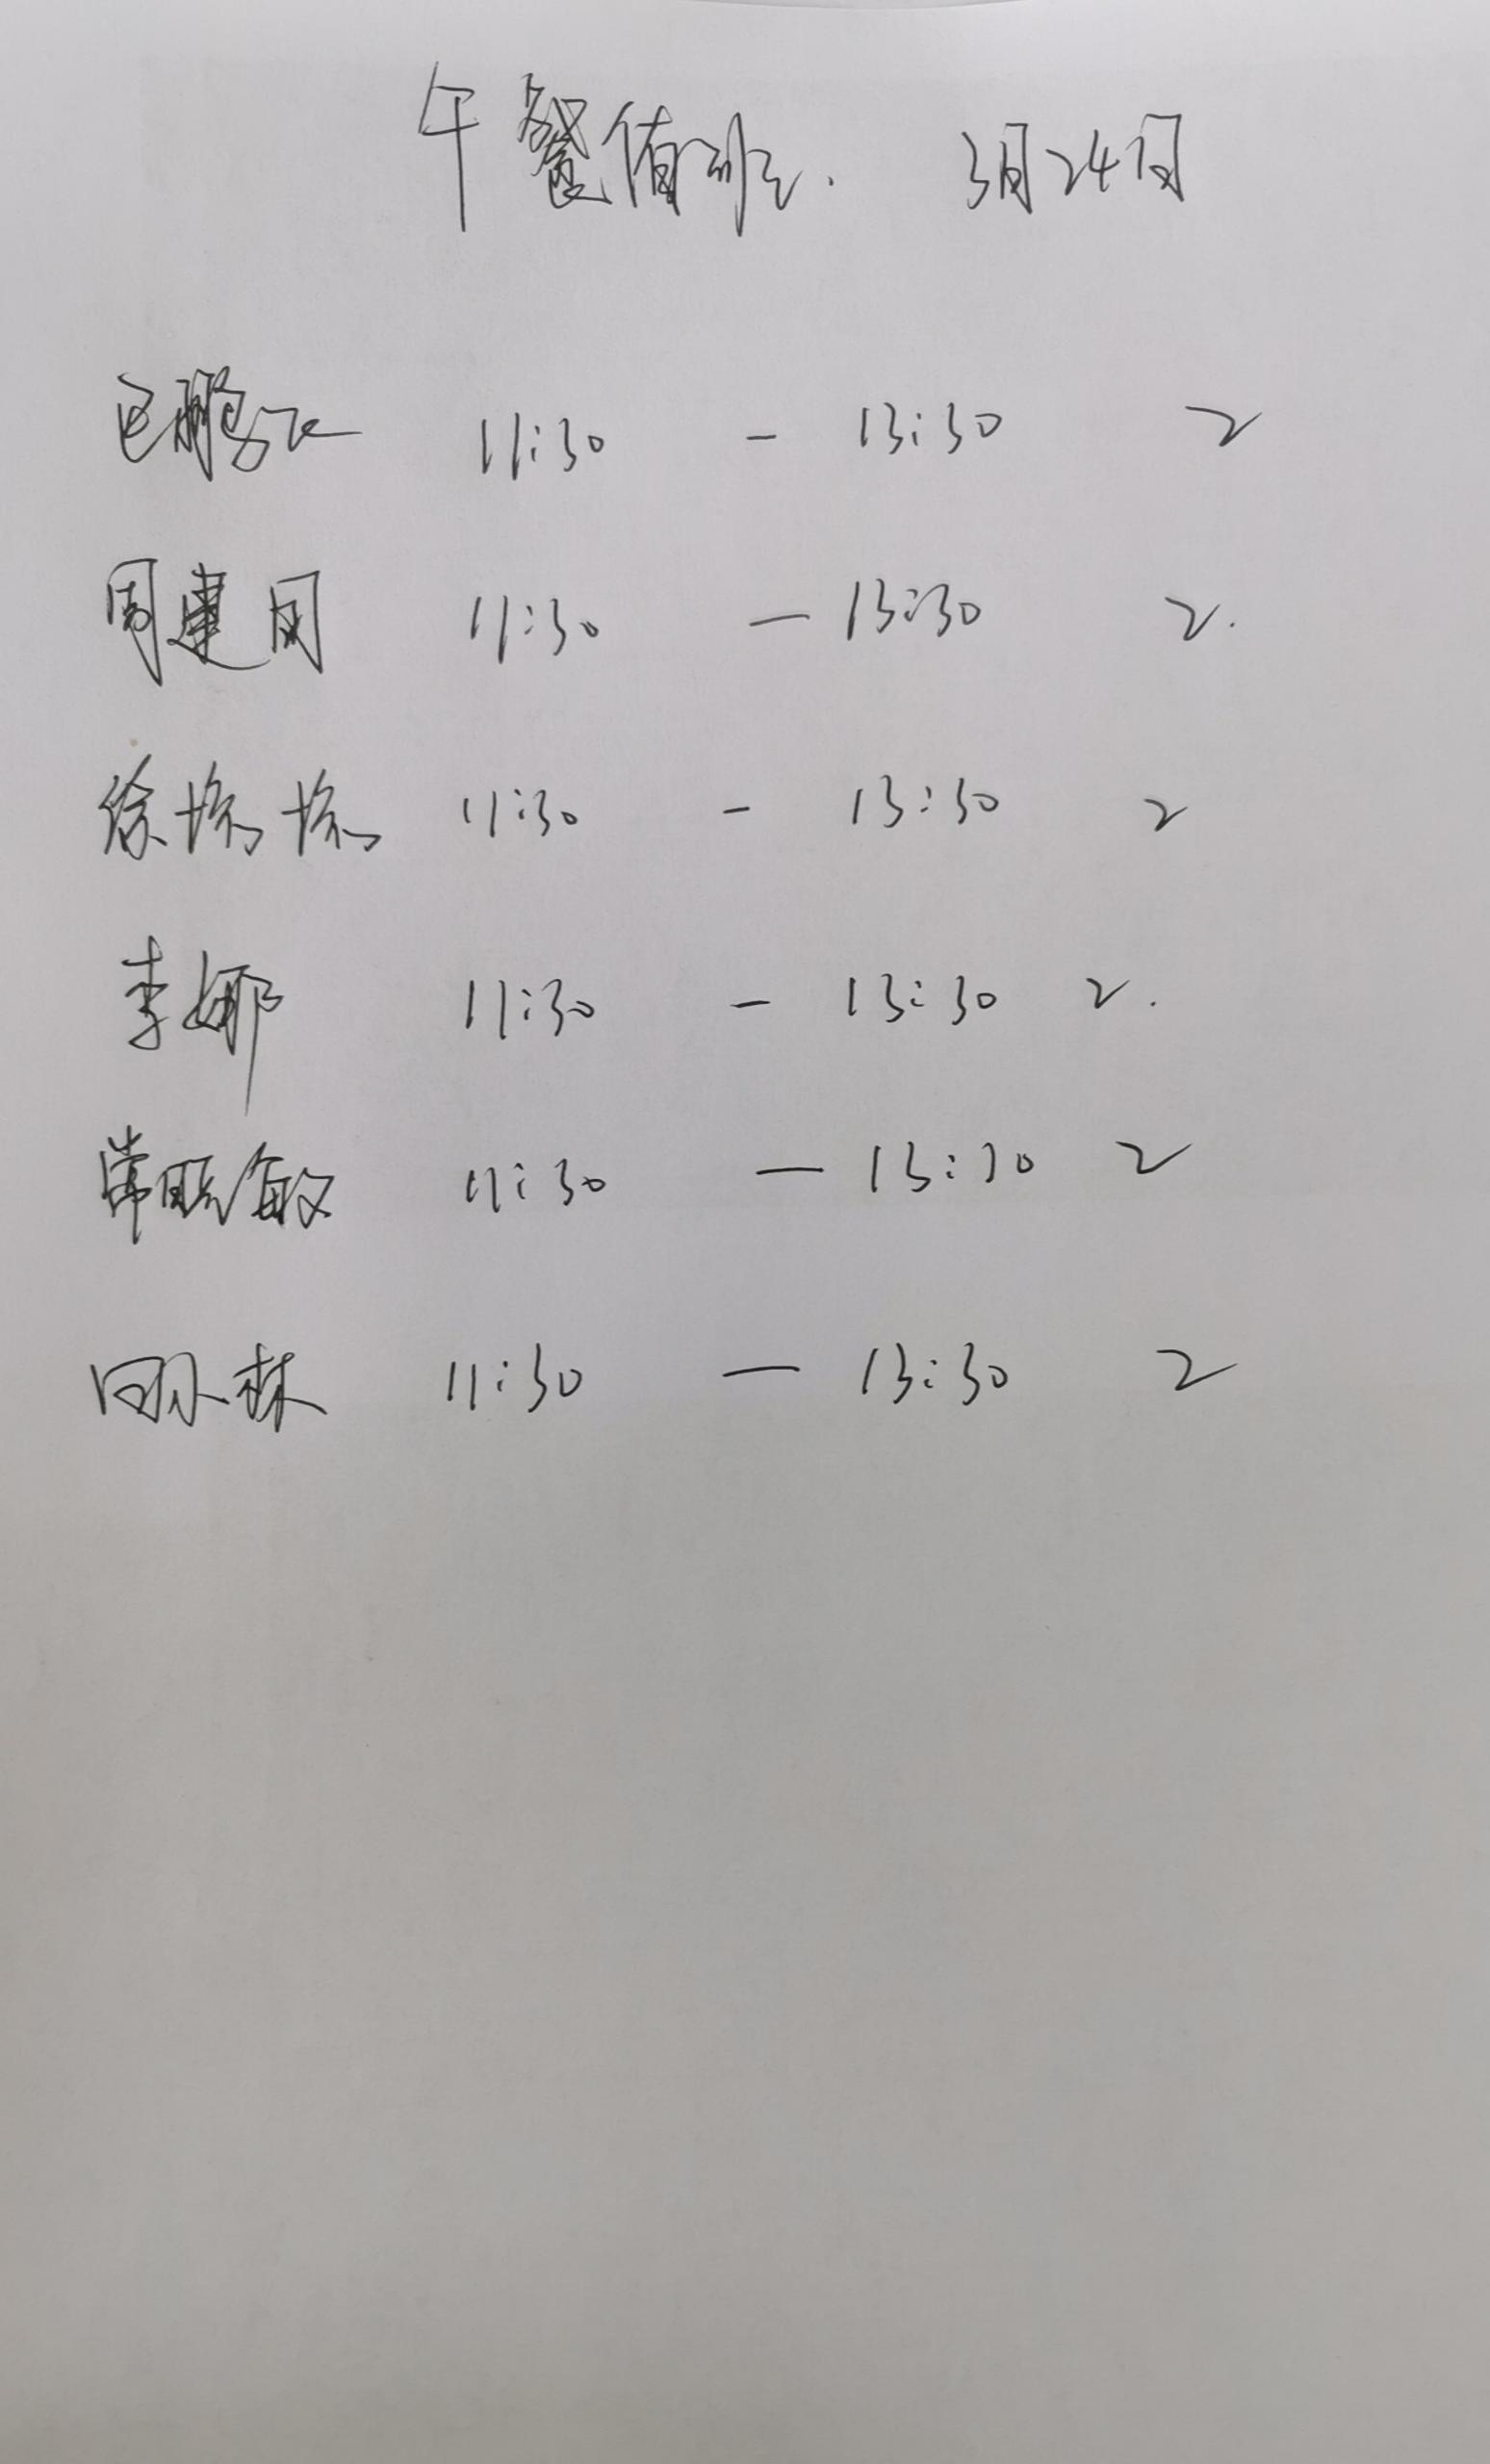 午餐值班. 3月24日
包鹏 11:30 - 13:30 2
周建 11:30 — 13:30 2.
徐 11:30 - 13:30 2
李娜 11:30 - 13:30 2.
常晓敏 11:30 — 13:30 2
田小林 11:30 — 13:30 2